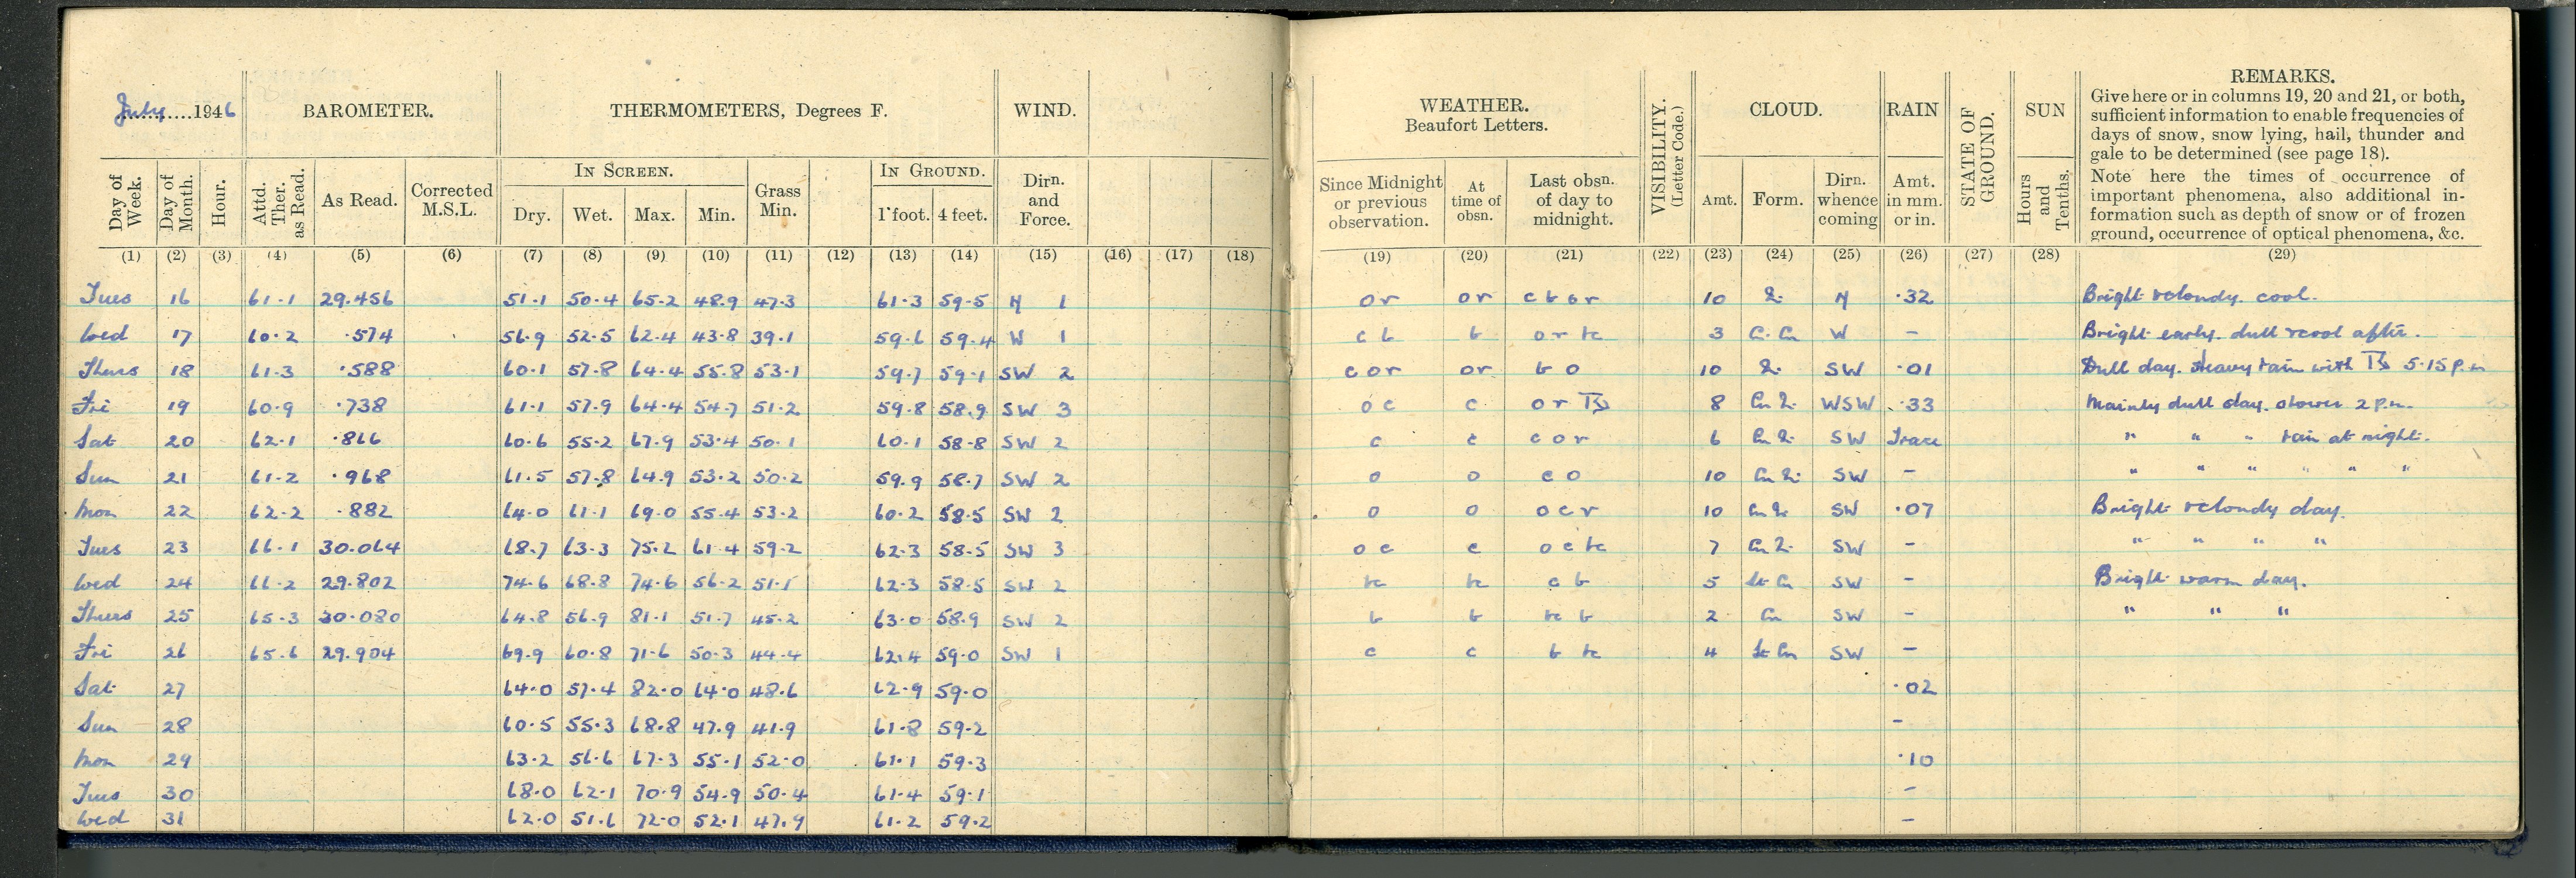 July 1946
BAROMETER.
THERMOMETERS, Degrees F.
WIND.
WEATHER.
Beaufort Letters.
VISIBILITY.
(Letter Code.)
CLOUD.
RAIN
STATE OF
GROUND.
SUN
REMARKS.
Give here or in columns 19, 20 and 21, or both,
sufficient information to enable frequencies of
days of snow, snow lying, hail, thunder and
gale to be determined (see page 18).
Note here the times of occurrence of
important phenomena, also additional in-
formation such as depth of snow or of frozen
ground, occurrence of optical phenomena, &c.
Day of Week.
Day of Month.
Hour.
Attd. Ther. as Read.
As Read.
Corrected M.S.L.
IN SCREEN.
Dry. Wet. Max. Min.
Grass Min.
IN GROUND.
1 foot. 4 feet.
Dirn. and Force.
Since Midnight or previous observation.
At time of obsn.
Last obsn. of day to midnight.
Amt. Form. Dirn. whence coming
Amt. in mm. or in.
Hours and Tenths.
(1) (2) (3) (4) (5) (6) (7) (8) (9) (10) (11) (12) (13) (14) (15) (16) (17) (18) (19) (20) (21) (22) (23) (24) (25) (26) (27) (28) (29)
Tues 16 61.1 29.456 51.1 50.4 65.2 48.9 47.3 61.3 59.5 N 1 or or c b o r 10 N .32 Bright & cloudy. cool.
Wed 17 60.2 .574 56.9 52.5 62.4 43.8 39.1 59.6 59.4 W 1 c b b o r bc 3 W - Bright early. dull & cool after.
Thurs 18 61.3 .588 60.1 57.8 64.4 55.8 53.1 59.7 59.1 SW 2 c o r or b o 10 SW .01 Dull day. Heavy rain with 5.15 p.m
Fri 19 60.9 .738 61.1 57.9 64.4 54.7 51.2 59.8 58.9 SW 3 o c c o r 8 WSW .33 Mainly dull day. shower 2 p.m.
Sat 20 62.1 .866 60.6 55.2 67.9 53.4 50.1 60.1 58.8 SW 2 c c c o r 6 SW Trace " " " rain at night.
Sun 21 61.2 .968 61.5 57.8 64.9 53.2 50.2 59.9 58.7 SW 2 o o c o 10 SW - " " " " " "
Mon 22 62.2 .882 64.0 61.1 69.0 55.4 53.2 60.2 58.5 SW 2 o o o c r 10 SW .07 Bright & cloudy day.
Tues 23 66.1 30.064 68.7 63.3 75.2 61.4 59.2 62.3 58.5 SW 3 o c c o c bc 7 SW - " " " "
Wed 24 66.2 29.802 74.6 68.8 74.6 56.2 51.1 62.3 58.5 SW 2 bc bc c b 5 St Cu SW - Bright warm day.
Thurs 25 65.3 30.080 64.8 56.9 81.1 51.7 45.2 63.0 58.9 SW 2 b b bc b 2 Cu SW - " " "
Fri 26 65.6 29.904 69.9 60.8 71.6 50.3 44.4 62.4 59.0 SW 1 c c b bc 4 St Cu SW -
Sat 27 64.0 57.4 82.0 64.0 48.6 62.9 59.0 .02
Sun 28 60.5 55.3 68.8 47.9 41.9 61.8 59.2 -
Mon 29 63.2 56.6 67.3 55.1 52.0 61.1 59.3 .10
Tues 30 68.0 62.1 70.9 54.9 50.4 61.4 59.1 -
Wed 31 62.0 51.6 72.0 52.1 47.9 61.2 59.2 -